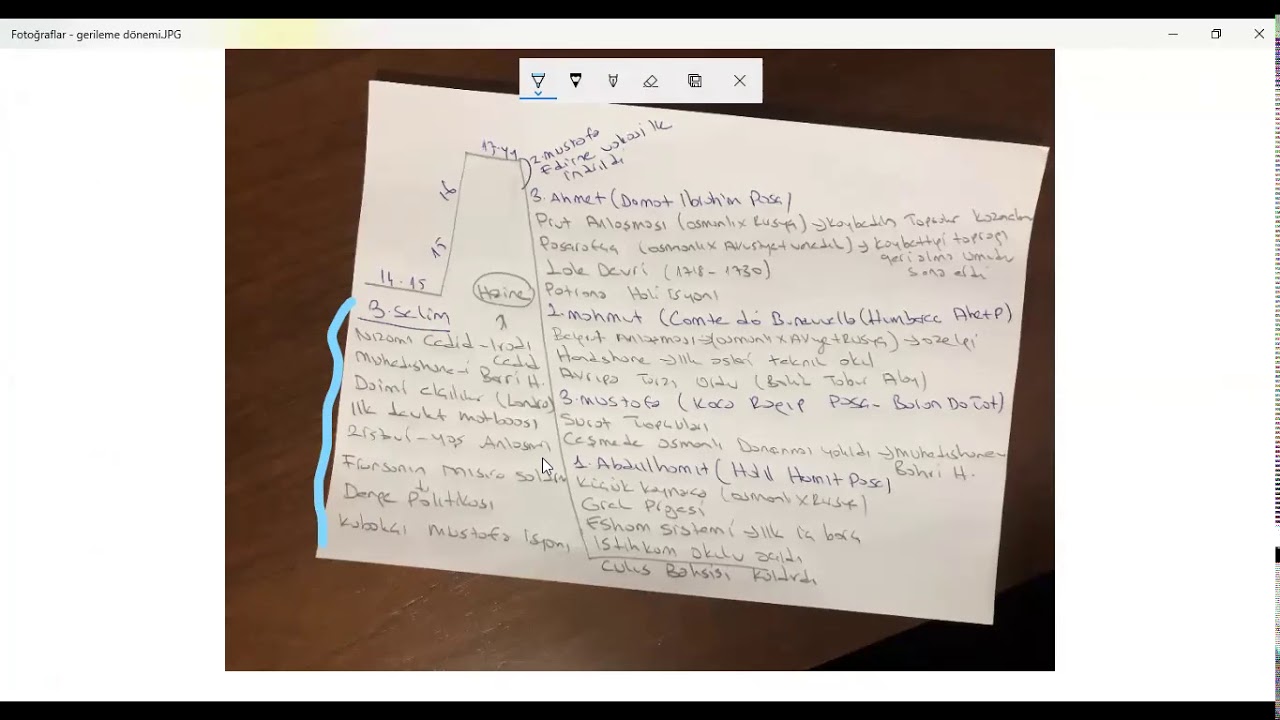 Fotoğraflar - gerileme dönemi.JPG
17-yy
2.mustafa
Edirne vakası ilk
indirildi
16
15
14-15
Hazine
3. Ahmet (Damat Ibrahim Paşa)
Prut Anlaşması (osmanlı x Rusya) → kaybedilen Topraklar kazanılan
Pasarofça (osmanlı x Avusturya venedik) → kaybettiği toprağı
geri alma umudu
sona erdi
Lale Devri (1718 - 1730)
Patrona Halil isyanı
1.mahmut (Comte dö B.nevvelb (Humbaracı Ahmet P)
Belgrat Anlaşması → (osmanlı x Av ye + Rusya) →
Handshane → ilk askeri teknik okul
Avrupa Tarzı Ordu (Bölük Tabur Alay)
3.mustafa (Koca Ragıp Paşa - Baron Do Tot)
Sürat Topçuları
Çeşmede osmanlı Donanması yakıldı → muhendishanei
Bahri H.
1. Abdulhamit (Halil Hamit Paşa)
Küçük Kaynarca (osmanlı x Rusya)
Grek Projesi
Esham sistemi → ilk iç borç
Istihkam okulu açıldı
Culus Bahşişi kaldırdı
3.selim
Nizamı Cedid - Iradı
Cedid
Muhendishane-i Berri H.
Daimi elçilikler (Londra)
Ilk devlet matbaası
Zistovi - yaş Anlaşması
Fransanın mısıra saldırı
Denge politikası
Kabakçı mustafa isyanı